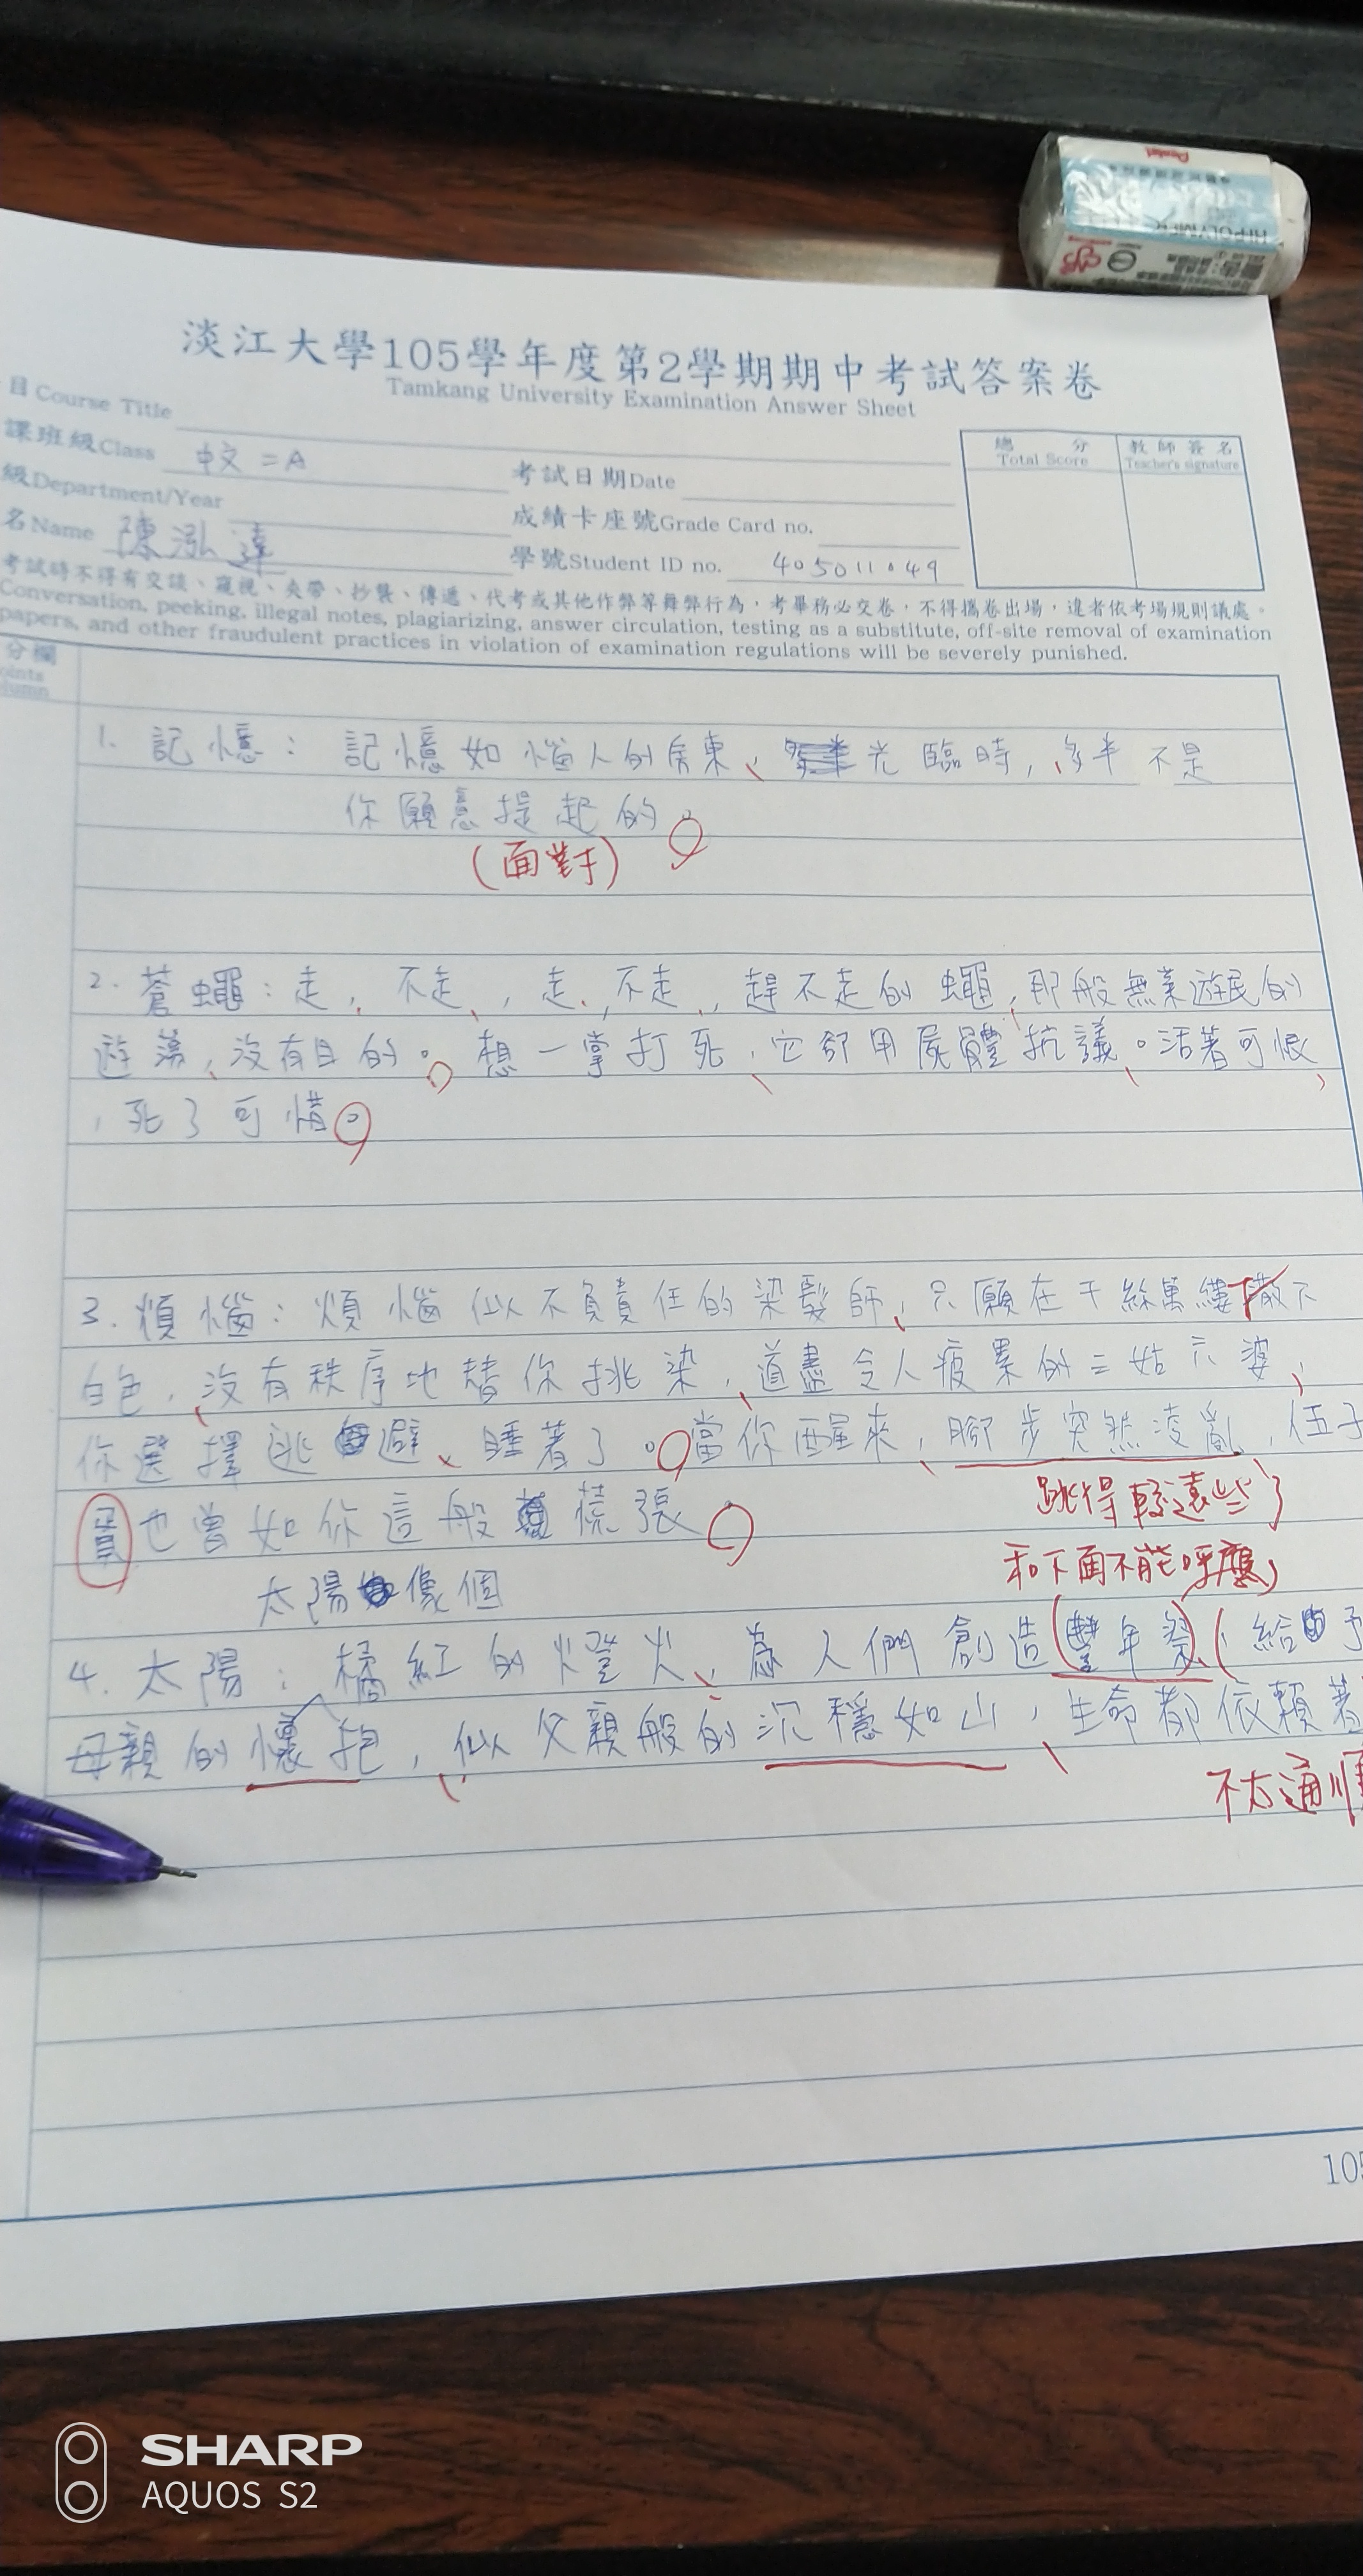 Pentel
HI-POLYMER
淡江大學105學年度第2學期期中考試答案卷
Tamkang University Examination Answer Sheet
目 Course Title
課班級Class 中文二A
考試日期Date
級Department/Year
成績卡座號Grade Card no.
名Name 陳泓達
學號Student ID no. 405011049
總 分 教師簽名
Total Score Teacher's signature
考試時不得有交談、窺視、夾帶、抄襲、傳遞、代考或其他作弊等舞弊行為，考畢務必交卷，不得攜卷出場，違者依考場規則議處。
Conversation, peeking, illegal notes, plagiarizing, answer circulation, testing as a substitute, off-site removal of examination
papers, and other fraudulent practices in violation of examination regulations will be severely punished.
分欄
1. 記憶：記憶如惱人的房東、光臨時，多半不是
你願意提起的。
（面對）
2. 蒼蠅：走，不走，走，不走，趕不走的蠅，那般無業遊民的
遊蕩，沒有目的。想一掌打死，它卻用屍體抗議。活著可恨
，死了可惜。
3. 煩惱：煩惱似不負責任的染髮師，只願在千絲萬縷撒下
白色，沒有秩序地替你挑染，道盡令人疲累的三姑六婆，
你選擇逃避、睡著了。當你醒來，腳步突然凌亂，伍子
胥也曾如你這般慌張。
跳得較遠些，
和下面不能呼應
太陽像個
4. 太陽：橘紅的燈火，為人們創造豐年祭，給予
母親的懷抱，似父親般的沉穩如山，生命都依賴著
不太通順
105
SHARP
AQUOS S2